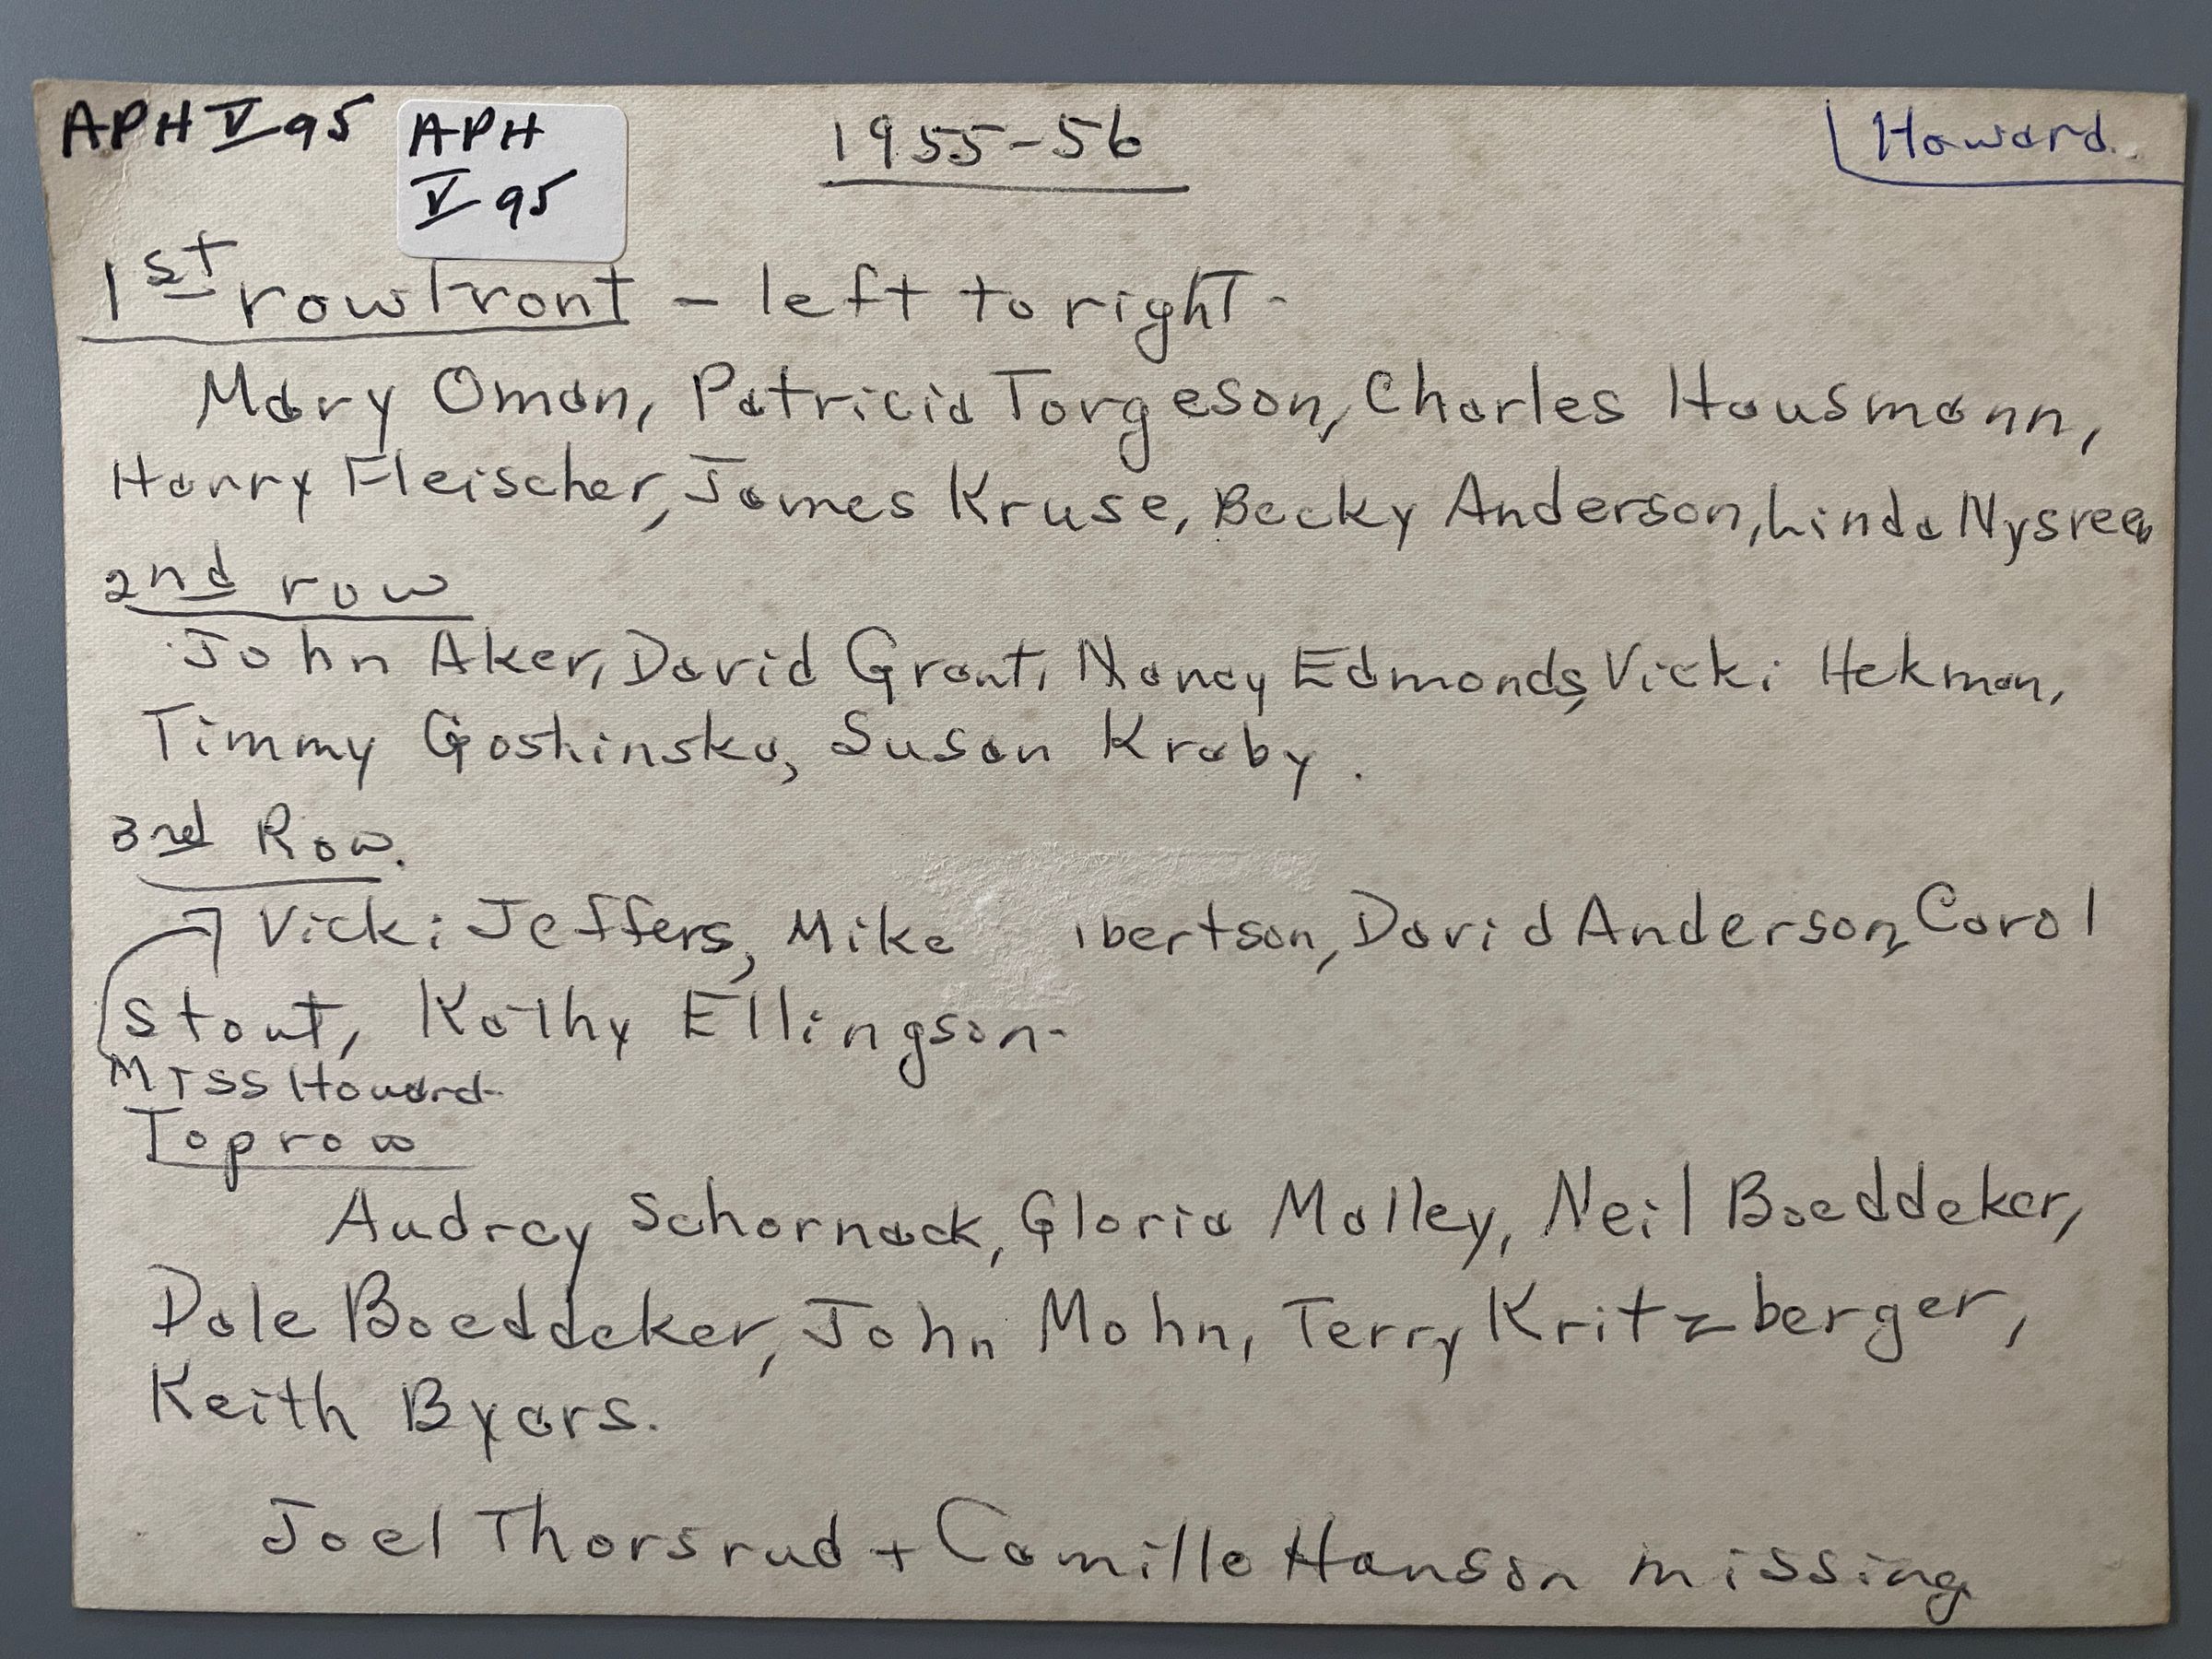 APH V 95
APH
V 95
1955-56
Howard
1st row front - left to right -
Mary Oman, Patricia Torgeson, Charles Hausmann,
Harry Fleischer, James Kruse, Becky Anderson, Linda
2nd row
John Aker, David Grant, Nancy Edmonds, Vicki Hekman,
Timmy Goshinska, Susan Kraby.
3rd Row.
Vicki Jeffers, Mike bertson, David Anderson, Carol
Stout, Kathy Ellingson-
Miss Howard
Top row
Audrey Schornack, Gloria Malley, Neil Boeddeker,
Dale Boeddeker, John Mohn, Terry Kritzberger,
Keith Byars.
Joel Thorsrud + Camille Hanson missing